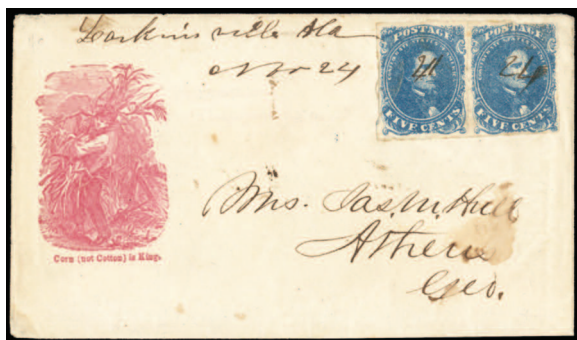 Larkinsville Ala
Nov 24
POSTAGE
FIVE CENTS
24
POSTAGE
FIVE CENTS
24
Corn (not Cotton) is King.
Mrs. Jas. M. Hull
Athens
Geo.